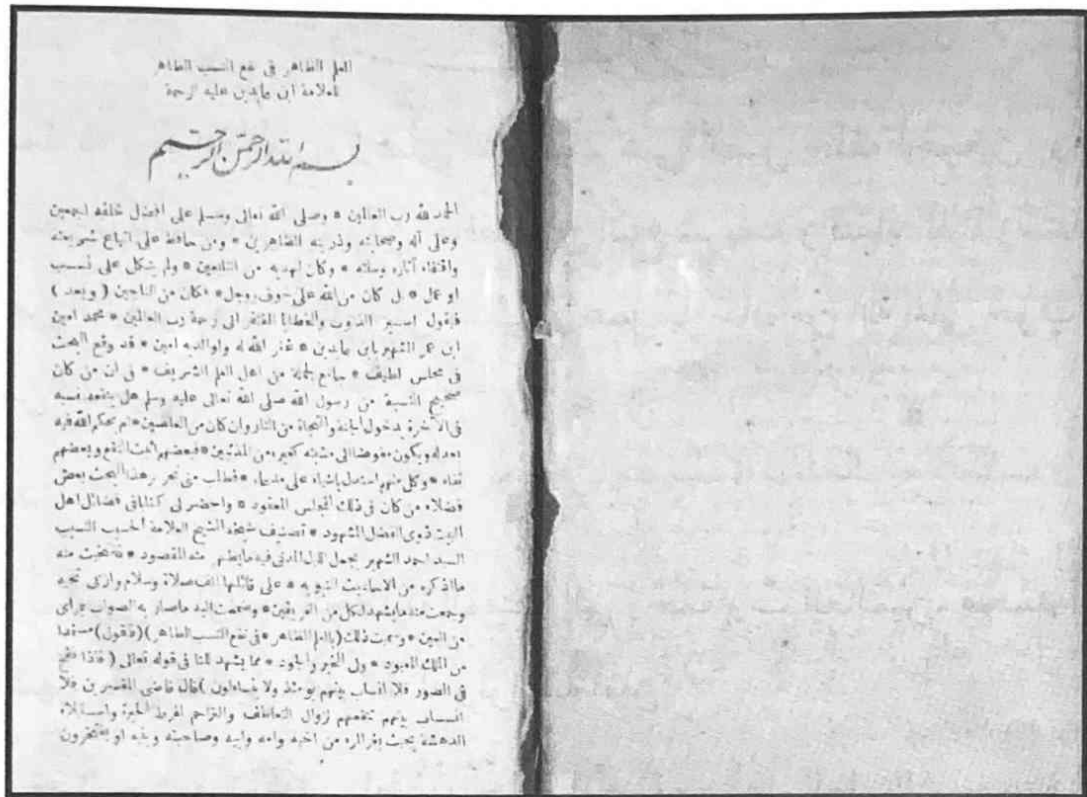 العلم الظاهر في نفع النسب الطاهر
للعلامة ابن عابدين عليه الرحمة
بسم الله الرحمن الرحيم
الحمد لله رب العالمين * وصلى الله تعالى وسلم على افضل خلقه اجمعين
وعلى آله وصحابته وذريته الطاهرين * ومن حافظ على اتباع شريعته
واقتفاء آثاره وسنته * وكان لهديه من التابعين * ولم يتكل على نسب
او عمل * بل كان من الله على خوف ووجل * فكان من الناجين ( وبعد )
فيقول اسير الذنوب والخطايا المفتقر الى رحمة رب العالمين * محمد امين
ابن عمر الشهير بابن عابدين * غفر الله له ولوالديه امين * قد وقع البحث
في مجلس لطيف * جامع لجملة من اهل العلم الشريف * في ان من كان
صحيح النسبة من رسول الله صلى الله تعالى عليه وسلم هل ينفعه نسبه
في الآخرة بدخول الجنة والنجاة من النار وان كان من العاصين * ام يحكم الله فيه
بعدله ويكون مفوضا الى مشيئته كغيره من المذنبين * فبعضهم اثبت النفع وبعضهم
نفاه * وكل منهم استدل باشياء على مدعاه * فطلب مني تحرير هذا البحث بعض
فضلاء من كان في ذلك المجلس المعقود * واحضر لي كتابا في فضائل اهل
البيت ذوي الفضل المشهود * تصنيف شيخه الشيخ العلامة الحسيب النسيب
السيد احمد الشهير بجمل الليل المدني فيه ما يظهر منه المقصود * فانتخبت منه
ما اذكره من الاحاديث النبويه * على قائلها الف صلاة وسلام وازكى تحية
وجمعت منه ما يشهد لكل من الفريقين * وضممت اليه ما صار به الصواب بمرأى
من العين * وسميت ذلك ( بالعلم الظاهر * في نفع النسب الطاهر ) ( فاقول ) مستمدا
من الملك المعبود * ولي الخير والجود * مما يشهد للثاني قوله تعالى ( فاذا نفخ
في الصور فلا انساب بينهم يومئذ ولا يتساءلون ) قال قاضي المفسرين فلا
انساب بينهم تنفعهم لزوال التعاطف والتراحم لفرط الحيرة واستيلاء
الدهشة بحيث يفر المرء من اخيه وامه وابيه وصاحبته وبنيه او يفتخرون